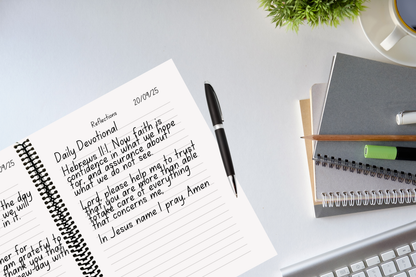 20/09/25
the day
we will
in it.
ner for
am grateful to
thank you that
new day with
Reflections
20/09/25
Daily Devotional
Hebrews 11:1. Now faith is
confidence in what we hope
for and assurance about
what we do not see.
Lord, please help me to trust
that you are more than able
to take care of everything
that concerns me.
In Jesus name I pray. Amen.